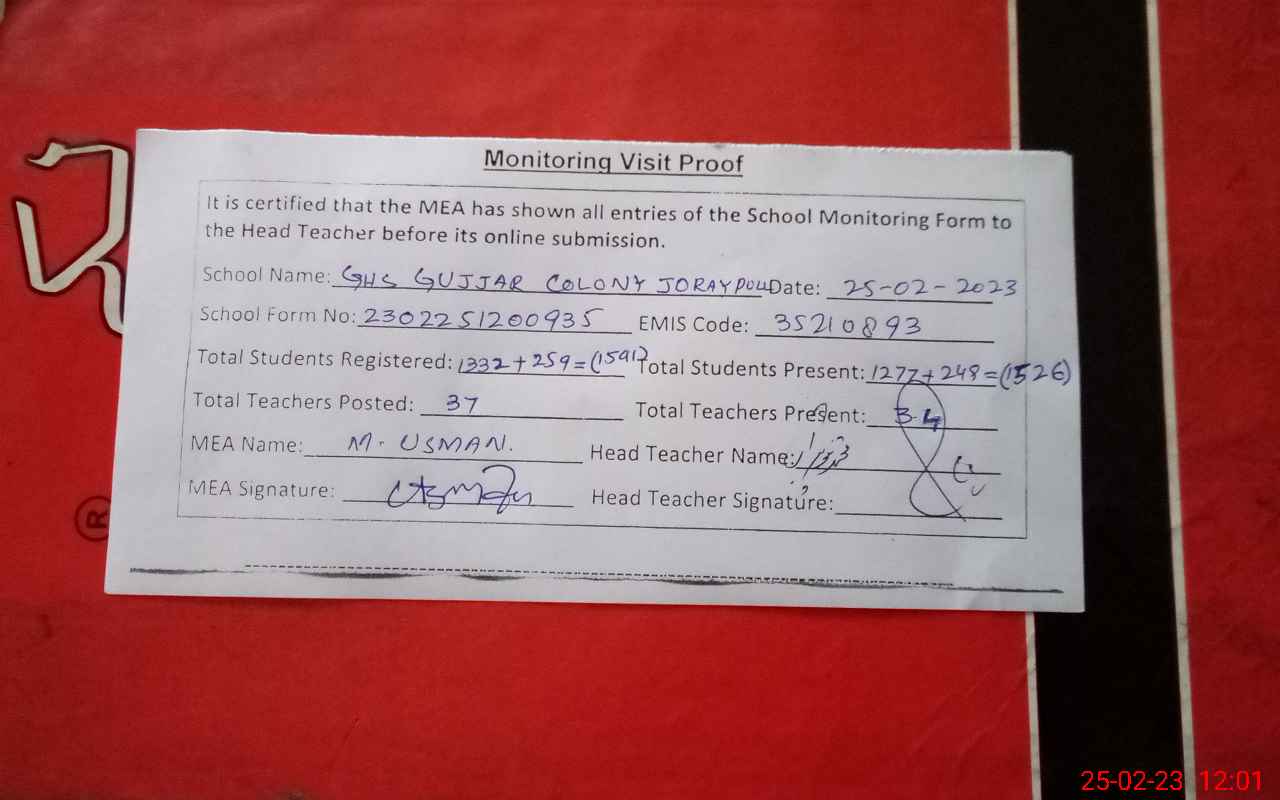 Monitoring Visit Proof
It is certified that the MEA has shown all entries of the School Monitoring Form to
the Head Teacher before its online submission.
School Name: GHS GUJJAR COLONY JORAYPULL Date: 25-02-2023
School Form No: 2302251200935 EMIS Code: 35210893
Total Students Registered: 1332+259=(1591) Total Students Present: 1277+248=(1526)
Total Teachers Posted: 37 Total Teachers Present: 34
MEA Name: M. USMAN. Head Teacher Name:
MEA Signature: Head Teacher Signature:
®
25-02-23 12:01